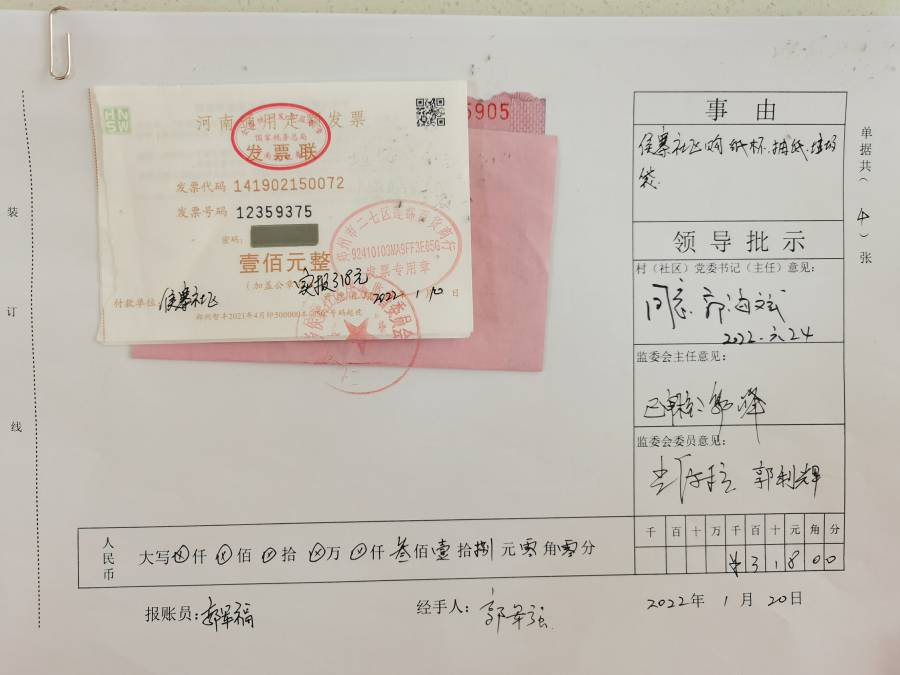 HN
SW
河南通用定额发票
国家税务总局
发票联
发票代码 141902150072
发票号码 12359375
密码:
壹佰元整
(加盖公章
实报318元
付款单位: 侯寨社区
2022年 1月 10日
92410103MA9FF3E65G
发票专用章
5905
事由
侯寨社区购纸杯、抽纸、垃圾
袋
单据共(4)张
领导批示
村(社区)党委书记(主任)意见:
同意
2022.6.24
监委会主任意见:
监委会委员意见:
郭利辉
装
订
线
人民币
大写⊗仟⊗佰⊗拾⊗万⊗仟叁佰壹拾捌元零角零分
千百十万千百十元角分
¥31800
报账员: 郭军福
经手人: 郭军强
2022年 1月 20日